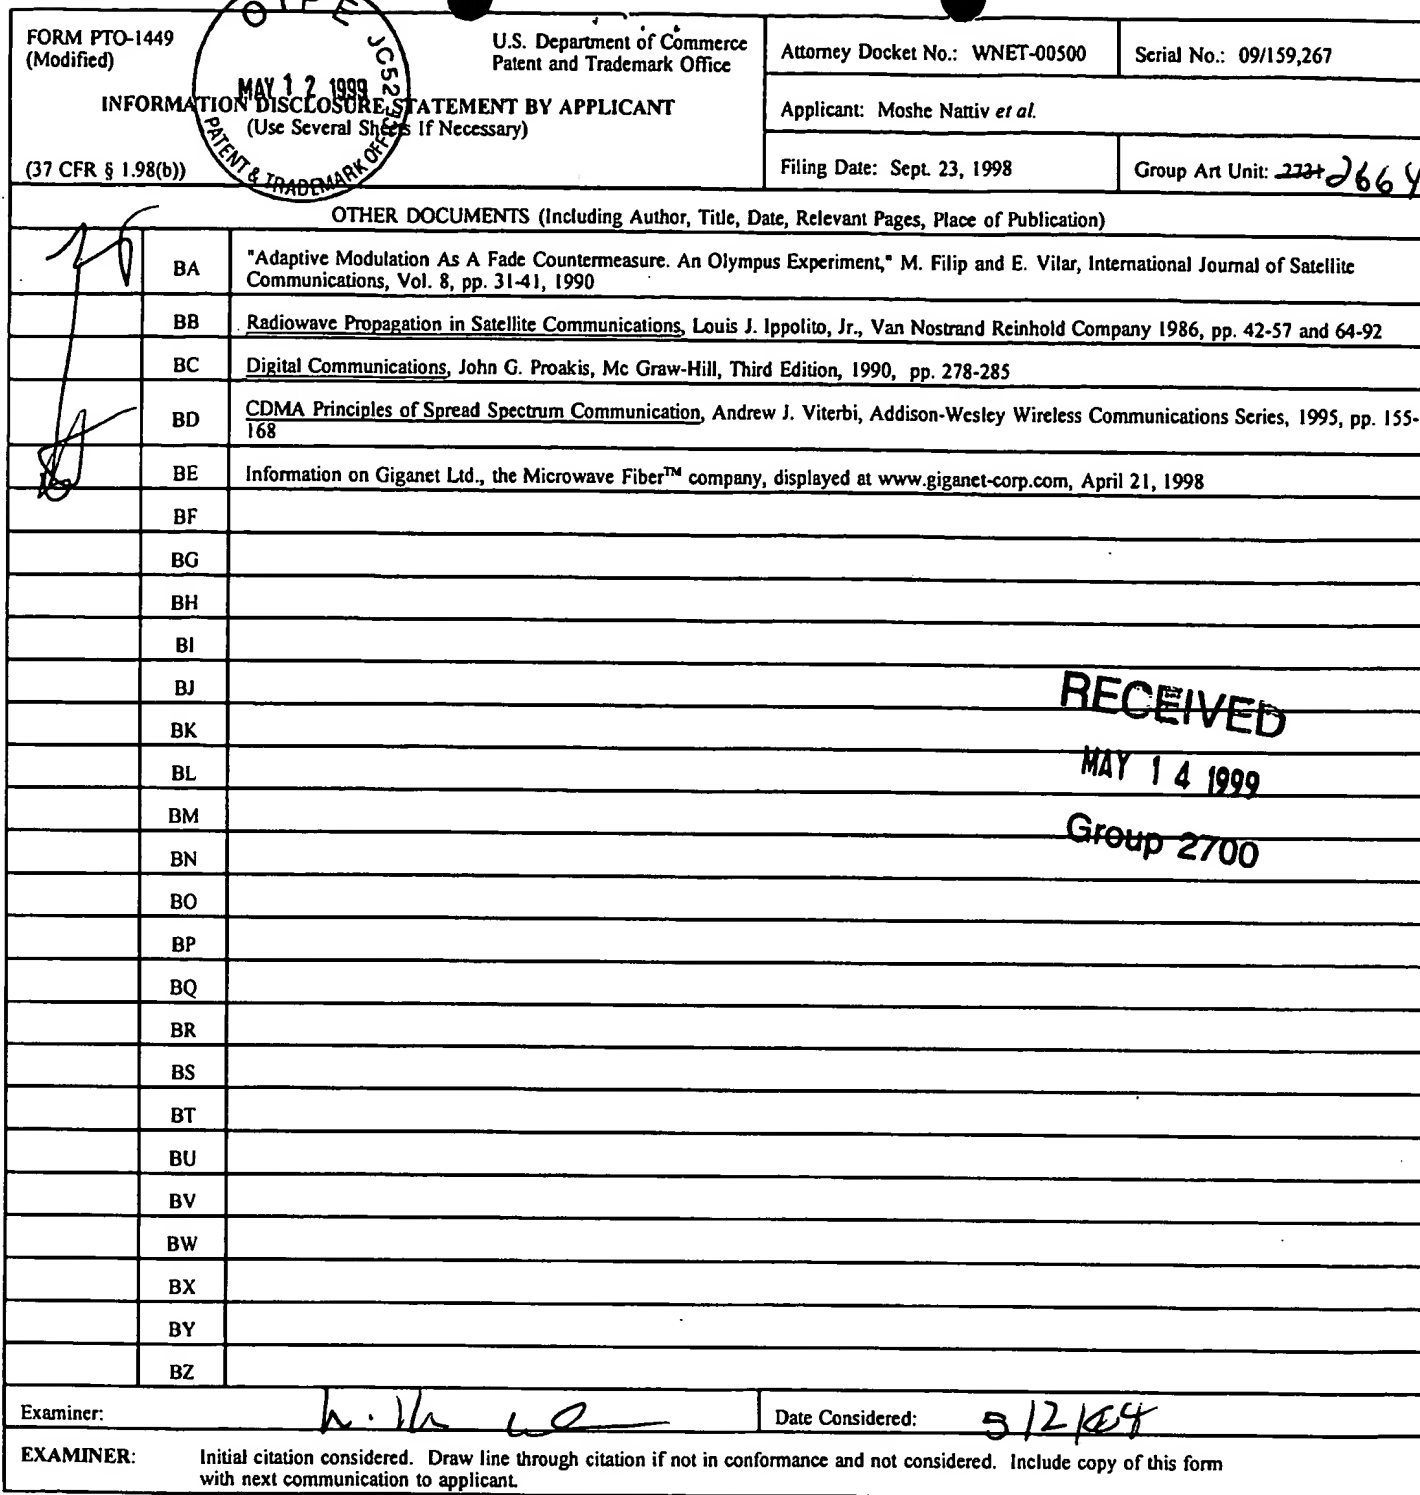 FORM PTO-1449
(Modified)
U.S. Department of Commerce
Patent and Trademark Office
INFORMATION DISCLOSURE STATEMENT BY APPLICANT
(Use Several Sheets If Necessary)
(37 CFR § 1.98(b))
OIPE JC525
MAY 12 1999
PATENT & TRADEMARK OFFICE
Attorney Docket No.: WNET-00500
Serial No.: 09/159,267
Applicant: Moshe Nattiv et al.
Filing Date: Sept. 23, 1998
Group Art Unit: 2731 2664
OTHER DOCUMENTS (Including Author, Title, Date, Relevant Pages, Place of Publication)
BA
"Adaptive Modulation As A Fade Countermeasure. An Olympus Experiment," M. Filip and E. Vilar, International Journal of Satellite
Communications, Vol. 8, pp. 31-41, 1990
BB
Radiowave Propagation in Satellite Communications, Louis J. Ippolito, Jr., Van Nostrand Reinhold Company 1986, pp. 42-57 and 64-92
BC
Digital Communications, John G. Proakis, Mc Graw-Hill, Third Edition, 1990, pp. 278-285
BD
CDMA Principles of Spread Spectrum Communication, Andrew J. Viterbi, Addison-Wesley Wireless Communications Series, 1995, pp. 155-
168
BE
Information on Giganet Ltd., the Microwave Fiber™ company, displayed at www.giganet-corp.com, April 21, 1998
BF
BG
BH
BI
BJ
BK
BL
BM
BN
BO
BP
BQ
BR
BS
BT
BU
BV
BW
BX
BY
BZ
RECEIVED
MAY 14 1999
Group 2700
Examiner:
Date Considered:
EXAMINER:
Initial citation considered. Draw line through citation if not in conformance and not considered. Include copy of this form
with next communication to applicant.